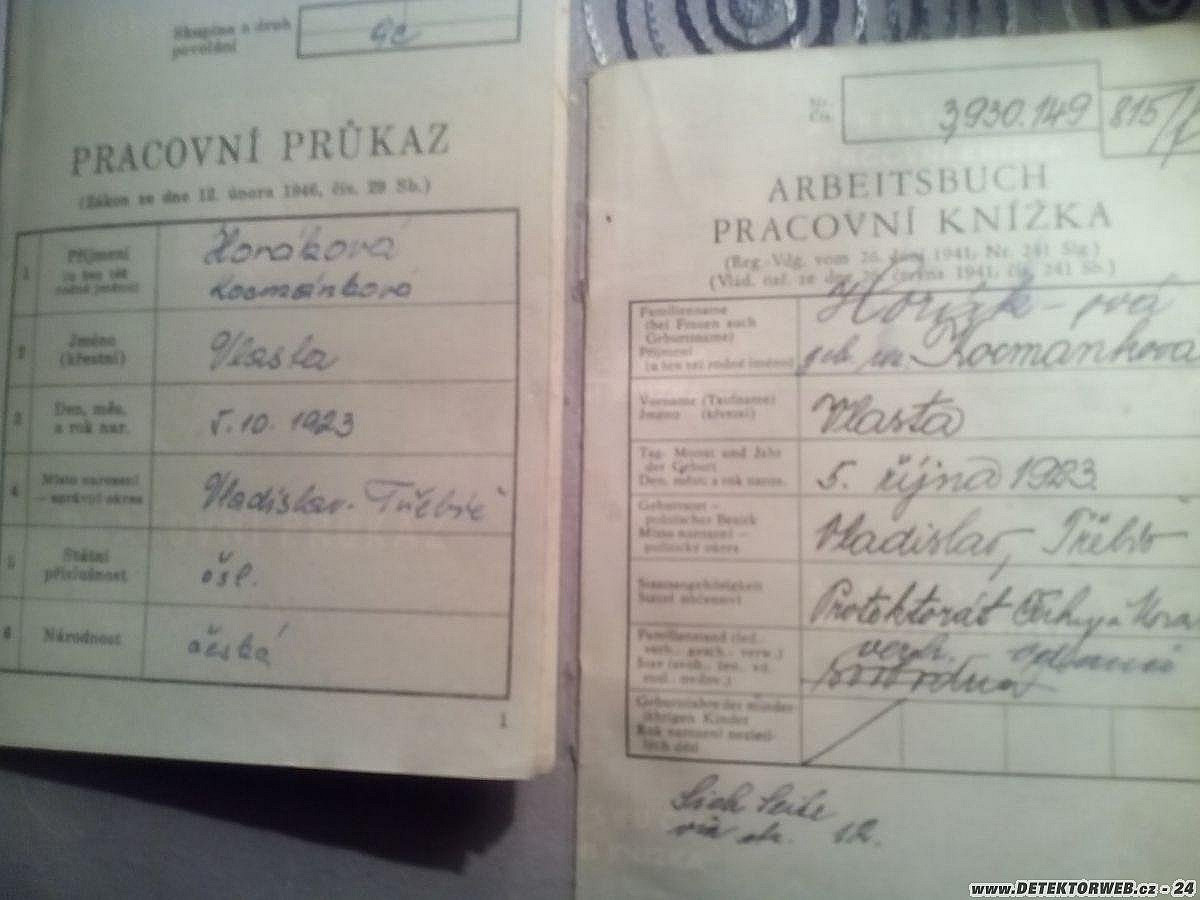 Skupina a druh
povolání
9c
PRACOVNÍ PRŮKAZ
(Zákon ze dne 12. února 1946, čís. 29 Sb.)
1
Příjmení
(u žen též
rodné jméno)
Horáková
Kocmánková
2
Jméno
(křestní)
Vlasta
3
Den, měs.
a rok nar.
5. 10. 1923
4
Místo narození
- správní okres
Vladislav - Třebíč
5
Státní
příslušnost
čsl.
6
Národnost
česká
1
Nr.
Čís.
3,930.149
815/
ARBEITSBUCH
PRACOVNÍ KNÍŽKA
(Reg.-Vdg. vom 26. Juni 1941, Nr. 241 Slg.)
(Vlád. nař. ze dne 26. června 1941, čís. 241 Sb.)
Familienname
(bei Frauen auch
Geburtsname)
Příjmení
(u žen též rodné jméno)
geb.
Kocmánková
Vorname (Taufname)
Jméno (křestní)
Vlasta
Tag, Monat und Jahr
der Geburt
Den, měsíc a rok naroz.
5. října 1923
Geburtsort -
politischer Bezirk
Místo narození -
politický okres
Vladislav, Třebíč
Staatsangehörigkeit
Státní občanství
Protektorát Čechy a Mora
Familienstand (led.,
verh., gesch., verw.)
Stav (svob., žen., vd.
rozl., ovdov.)
verh.
svobodna
Geburtsjahre der minder-
jährigen Kinder
Rok narození nezleti-
lých dětí
Sieh Seite
viz str. 12.
www.DETEKTORWEB.cz - 24